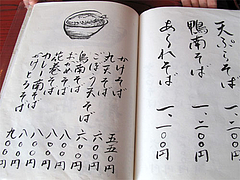 天ぷらそば 一、二〇〇円
鴨南そば 一、二〇〇円
あられそば 一、二〇〇円
かけそば 五五〇円
丸天そば 六〇〇円
ごぼう天そば 六〇〇円
鳥南そば 八〇〇円
おかめそば 八〇〇円
花巻そば 八〇〇円
カレー南そば 八〇〇円
かけとろそば 九〇〇円